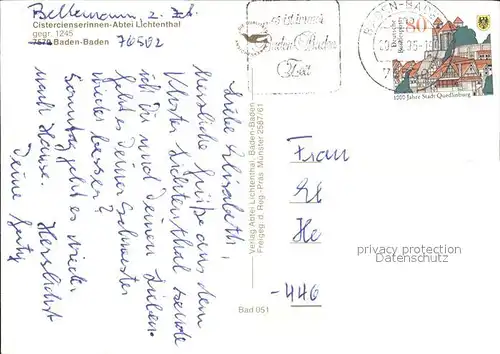 Bellemann, z. Zt.
Cistercienserinnen-Abtei Lichtenthal
gegr. 1245
7570 Baden-Baden
76502
es ist immer
Baden-Baden
Zeit
BADEN-BAD
80
Deutsche
Bundespost
1000 Jahre Stadt Quedlinburg
Liebe Elisabeth,
herzliche Grüße aus dem
Kloster Lichtenthal sende
ich Dir und Deinen Lieben.
Geht es Deiner Schwester
wieder besser?
Sonntag geht es wieder
nach Hause. Herzlichst
Deine
Verlag Abtei Lichtenthal, Baden-Baden
Freigeg. d. Reg.-Präs. Münster 2587/61
Bad 051
Frau
El
He
-446
privacy protection
Datenschutz